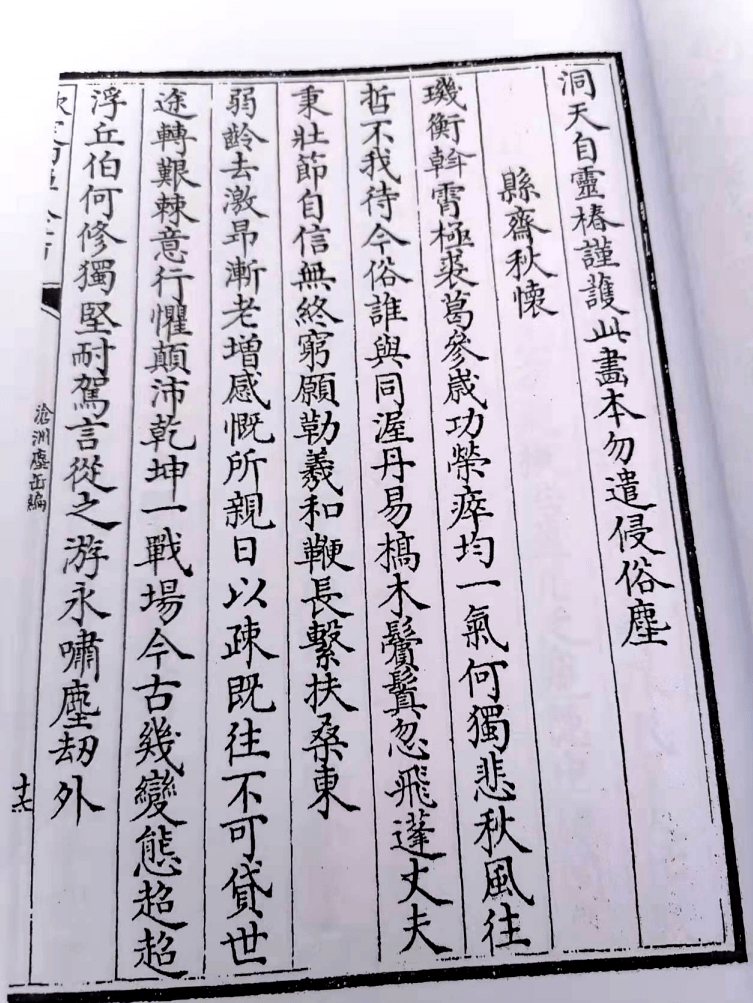 洞天自靈椿謹護此畵本勿遣侵俗塵
縣齋秋懷
璣衡斡霄極裘葛參歲功榮瘁均一氣何獨悲秋風往
哲不我待今俗誰與同渥丹易槁木鬢鬒忽飛蓬丈夫
秉壯節自信無終窮願勒羲和鞭長繫扶桑東
弱齡去激昂漸老增感慨所親日以疎既往不可貸世
途轉艱棘意行懼顛沛乾坤一戰場今古幾變態超超
浮丘伯何修獨堅耐駕言從之游永嘯塵刼外
滄洲塵缶編